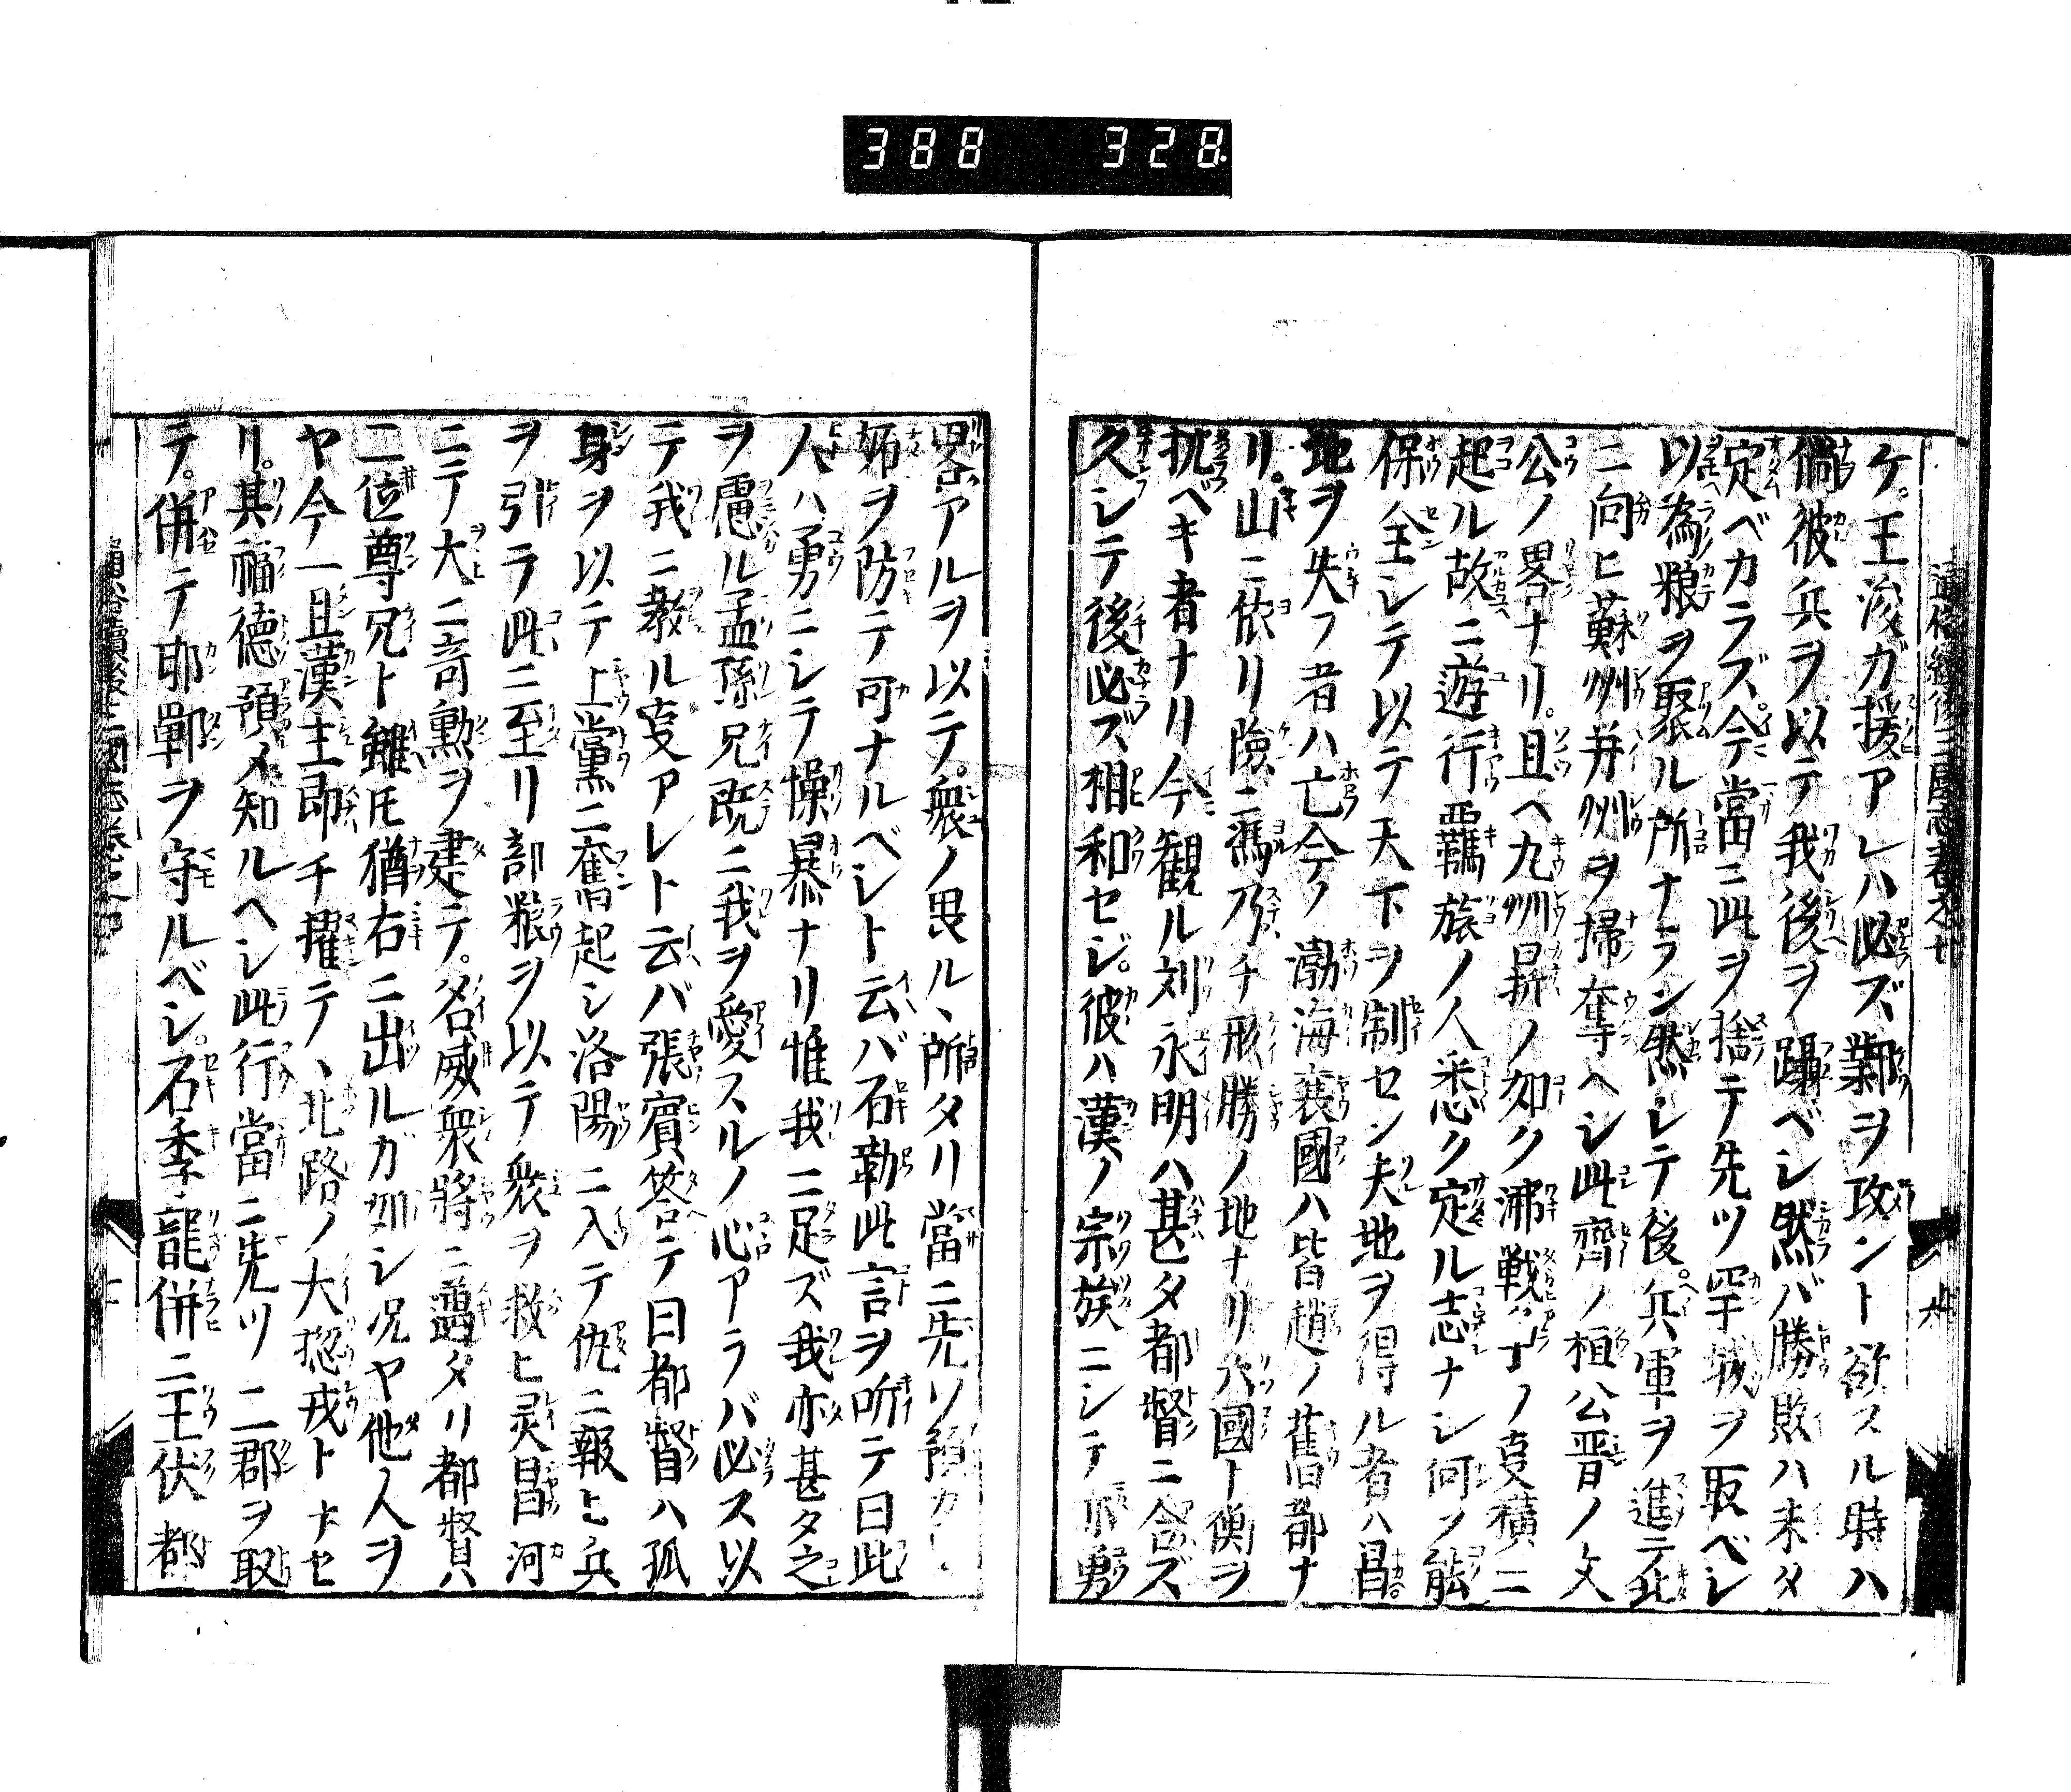 388 328
ケ。王浚ガ援アレハ必ズ鄴ヲ攻ント欲スル時ハ
倘彼兵ヲ以テ我後ヲ躡ベシ然バ勝敗ハ未タ
定ベカラズ。今當ニ此ヲ捨テ先ツ罕城ヲ取ベシ
以為粮ヲ聚ル所ナラン然シテ後。兵軍ヲ進テ北
ニ向ヒ蘇州并州ヲ掃奪ヘシ此齊ノ桓公晋ノ文
公ノ畧ナリ。且ヘ九州昇ノ如ク沸戦丁ノ叓積ニ
起ル故ニ遊行羈旅ノ人悉ク定ル志ナシ何ソ能
保全シテ以テ天下ヲ制セン夫地ヲ得ル者ハ昌
地ヲ失フ者ハ亡今ノ渤海襄國ハ皆趙ノ舊都ナ
リ。山ニ依リ險ニ馮乃チ形勝ノ地ナリ六國ト衡ヲ
抗ベキ者ナリ今観ル刘永明ハ甚タ都督ニ合ズ
久シテ後必ズ相和セジ。彼ハ漢ノ宗族ニシテ亦勇
畧アルヲ以テ。衆ノ畏ル丶所タリ當ニ先ソ
妬ヲ防テ可ナルベシト云バ石勒此言ヲ听テ曰此
人ハ勇ニシテ懆暴ナリ惟我ニ足ズ我亦甚タ之
ヲ慮ル孟孫兄既ニ我ヲ愛スルノ心アラバ必ス以
テ我ニ教ル叓アレト云バ張賔答テ曰都督ハ孤
身ヲ以テ上黨ニ奮起シ洛陽ニ入テ仇ニ報ヒ兵
ヲ引テ此ニ至リ部粮ヲ以テ衆ヲ救ヒ灵昌河
ニテ大ニ奇勲ヲ建テ。名威衆將ニ邁タリ都督ハ
二位尊兄ト雖圧猶右ニ出ルガ如シ况ヤ他人ヲ
ヤ今一旦漢主即チ擢テ丶北路ノ大揔戎トナセ
リ。其福德預メ知ルヘシ此行當ニ先ツ二郡ヲ取
テ。併テ邯鄲ヲ守ルベシ。石季龍併ニ王伏都